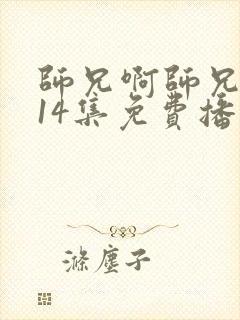 師兄啊師兄
14集免費播
滌塵子